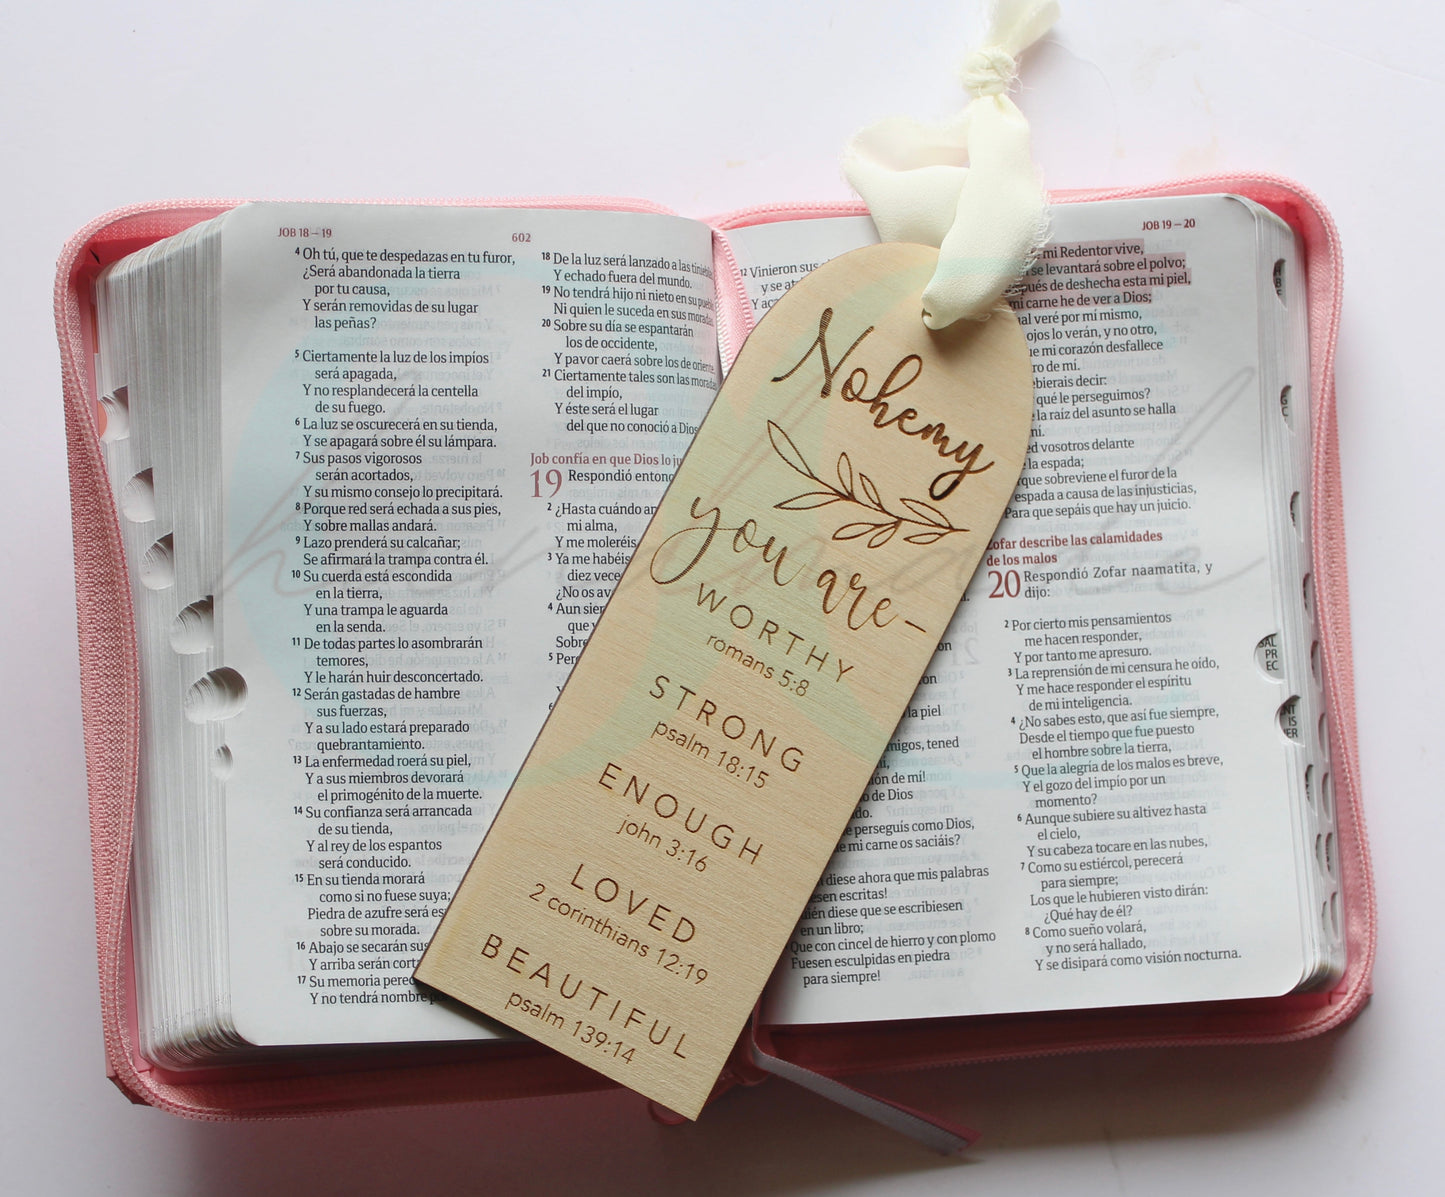 JOB 18 — 19
602
4 Oh tú, que te despedazas en tu furor,
¿Será abandonada la tierra
por tu causa,
Y serán removidas de su lugar
las peñas?
5 Ciertamente la luz de los impíos
será apagada,
Y no resplandecerá la centella
de su fuego.
6 La luz se oscurecerá en su tienda,
Y se apagará sobre él su lámpara.
7 Sus pasos vigorosos
serán acortados,
Y su mismo consejo lo precipitará.
8 Porque red será echada a sus pies,
Y sobre mallas andará.
9 Lazo prenderá su calcañar;
Se afirmará la trampa contra él.
10 Su cuerda está escondida
en la tierra,
Y una trampa le aguarda
en la senda.
11 De todas partes lo asombrarán
temores,
Y le harán huir desconcertado.
12 Serán gastadas de hambre
sus fuerzas,
Y a su lado estará preparado
quebrantamiento.
13 La enfermedad roerá su piel,
Y a sus miembros devorará
el primogénito de la muerte.
14 Su confianza será arrancada
de su tienda,
Y al rey de los espantos
será conducido.
15 En su tienda morará
como si no fuese suya;
Piedra de azufre será
sobre su morada.
16 Abajo se secarán sus
Y arriba serán
17 Su memoria
Y no tendrá nombre
18 De la luz será lanzado a las
Y echado fuera del mundo.
19 No tendrá hijo ni nieto en su
Ni quien le suceda en sus moradas
20 Sobre su día se espantarán
los de occidente,
Y pavor caerá sobre los de oriente
21 Ciertamente tales son las moradas
del impío,
Y éste será el lugar
del que no conoció a Dios
Job confía en que Dios lo
19 Respondió
2 ¿Hasta cuándo
mi alma,
Y me moleréis
3 Ya me
diez
¿No os
4 Aun
que
Sobre
5
Nohemy
you are –
WORTHY
romans 5:8
STRONG
psalm 18:15
ENOUGH
john 3:16
LOVED
2 corinthians 12:19
BEAUTIFUL
psalm 139:14
JOB 19 — 20
12 Vinieron sus
y se
mi Redentor vive,
se levantará sobre el polvo;
de deshecha esta mi piel,
mi carne he de ver a Dios;
veré por mí mismo,
ojos lo verán, y no otro,
mi corazón desfallece
de mí.
decir:
qué le perseguimos?
la raíz del asunto se halla
vosotros delante
la espada;
que sobreviene el furor de la
espada a causa de las injusticias,
Para que sepáis que hay un juicio.
la piel
tened
de mí!
de Dios
perseguís como Dios,
mi carne os saciáis?
diese ahora que mis palabras
escritas!
diese que se escribiesen
en un libro;
Que con cincel de hierro y con plomo
Fuesen esculpidas en piedra
para siempre!
Zofar describe las calamidades
de los malos
20 Respondió Zofar naamatita, y
dijo:
2 Por cierto mis pensamientos
me hacen responder,
Y por tanto me apresuro.
3 La reprensión de mi censura he oído,
Y me hace responder el espíritu
de mi inteligencia.
4 ¿No sabes esto, que así fue siempre,
Desde el tiempo que fue puesto
el hombre sobre la tierra,
5 Que la alegría de los malos es breve,
Y el gozo del impío por un
momento?
6 Aunque subiere su altivez hasta
el cielo,
Y su cabeza tocare en las nubes,
7 Como su estiércol, perecerá
para siempre;
Los que le hubieren visto dirán:
¿Qué hay de él?
8 Como sueño volará,
y no será hallado,
Y se disipará como visión nocturna.
SAL
PR
EC